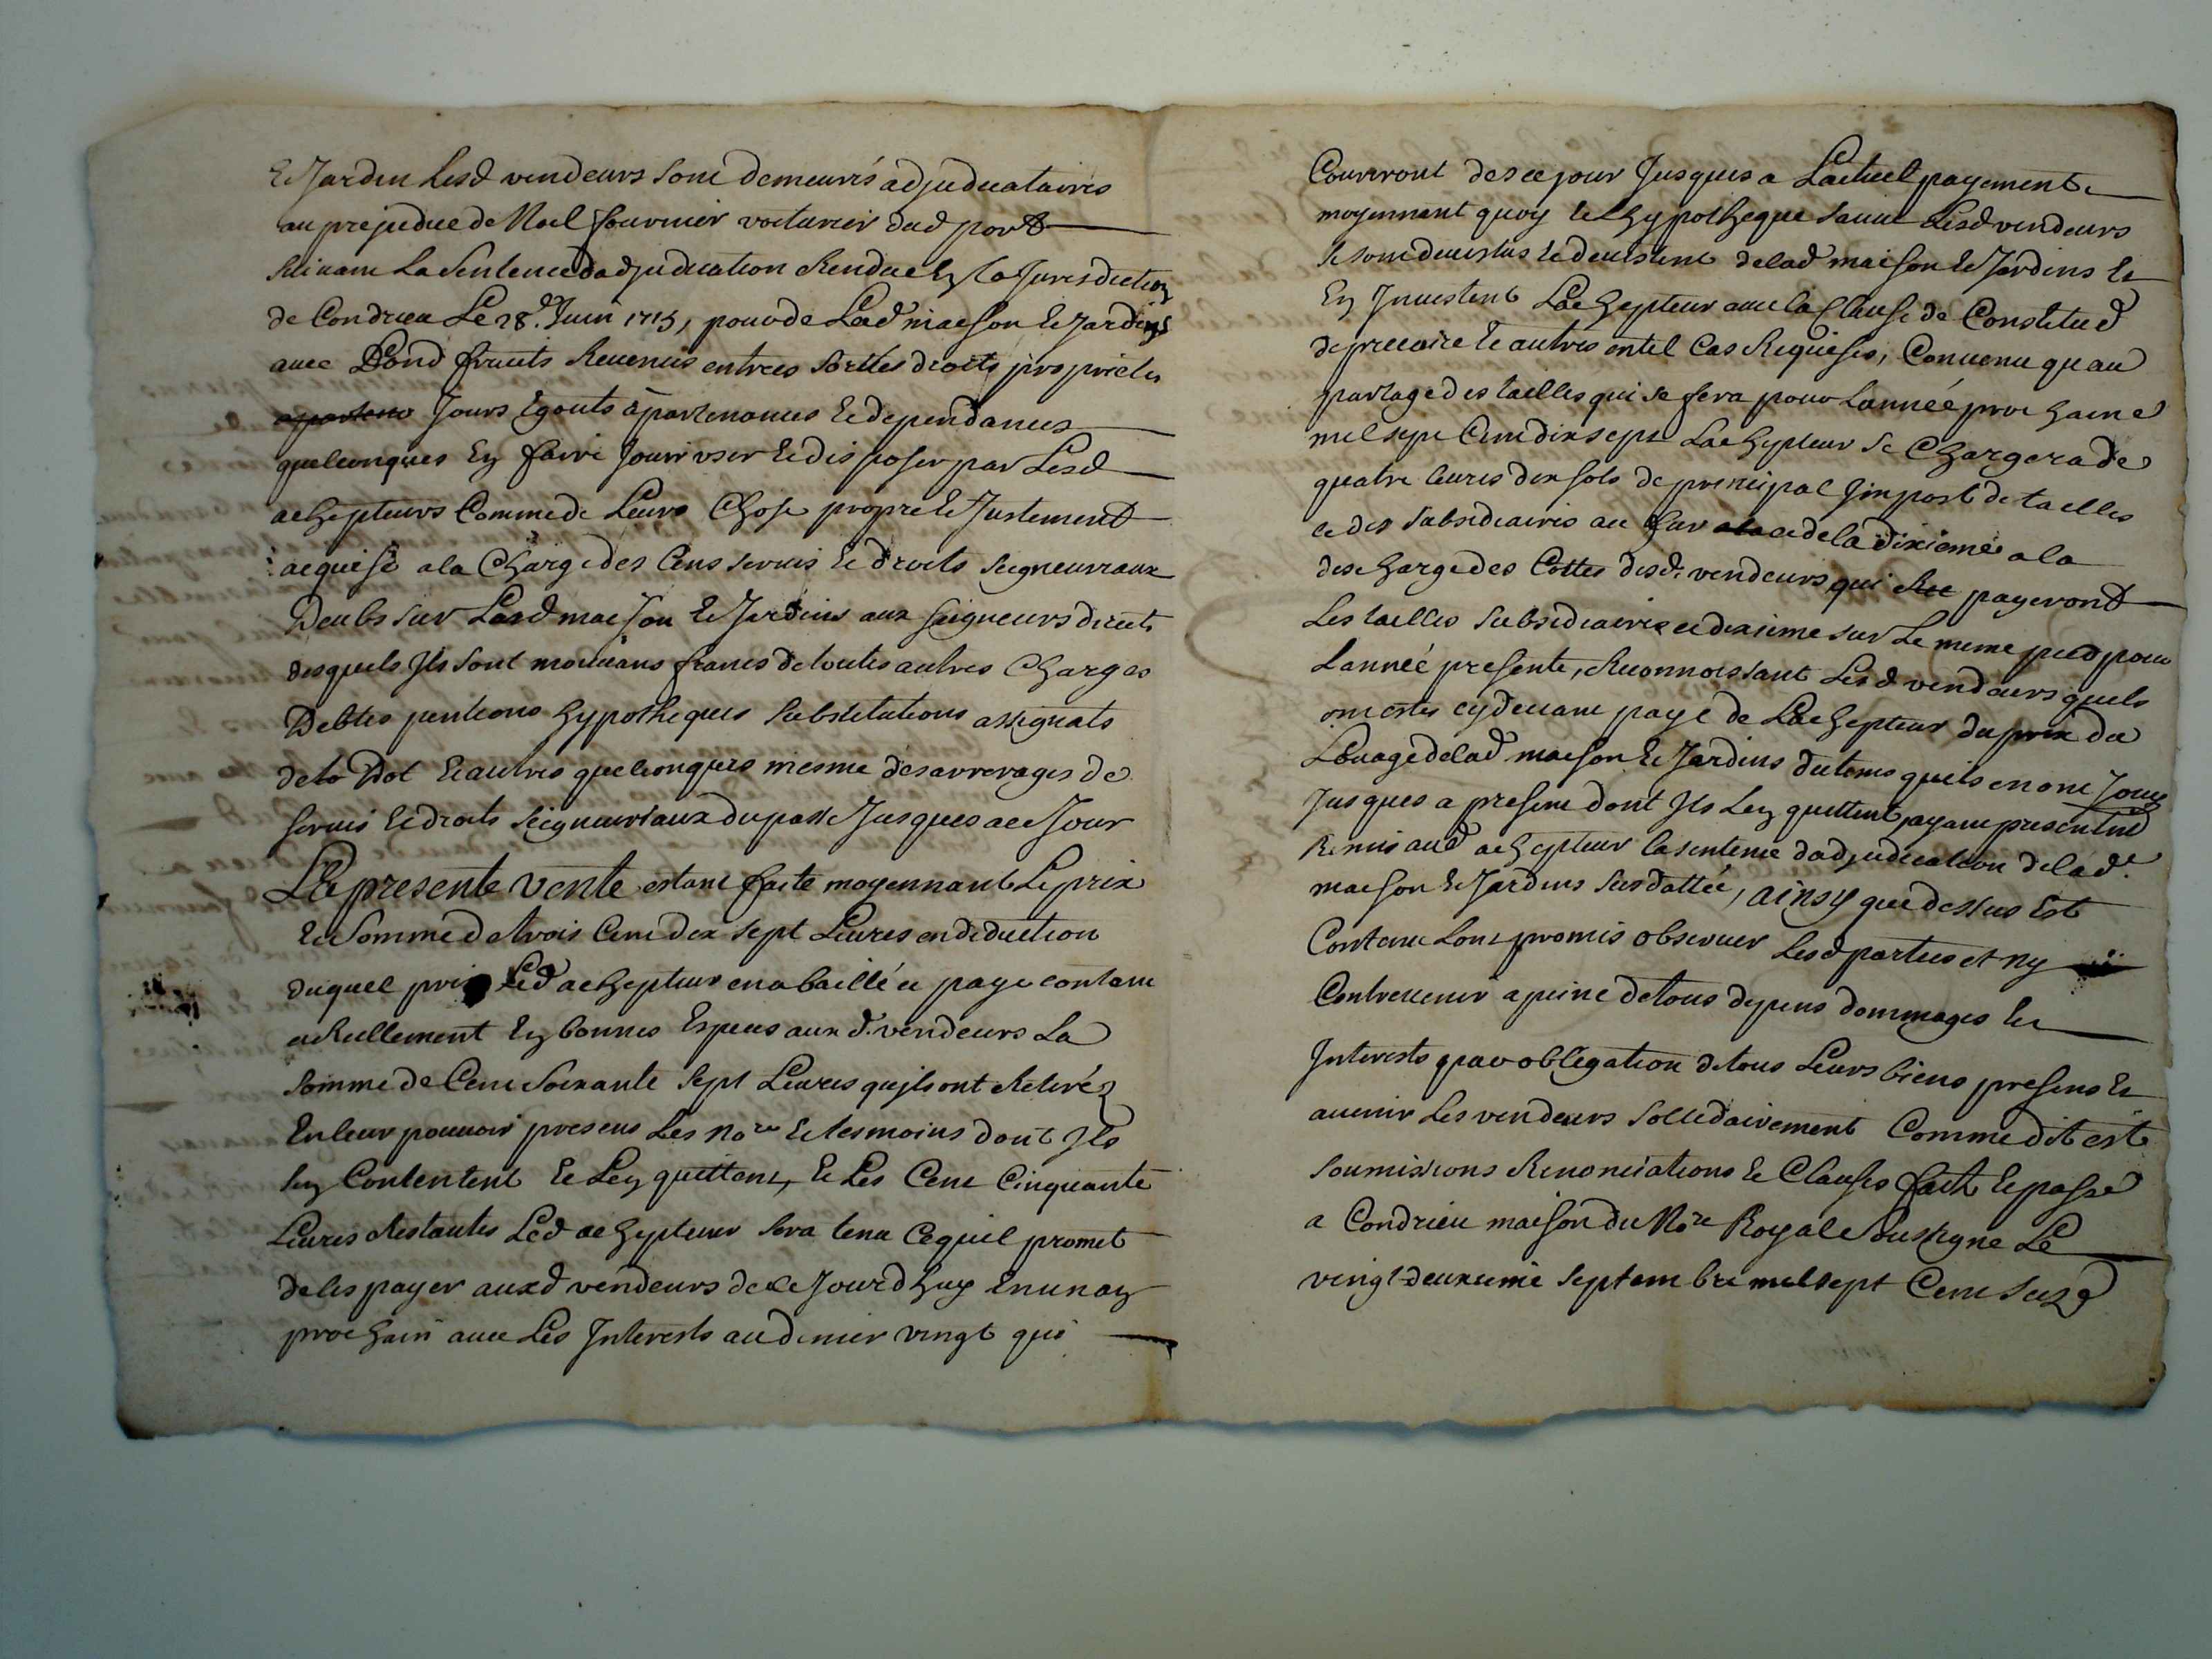 Et Jardin Lesd vendeurs sont demeurés adjudicataires
au prejudice de Noel fournier voiturier dud port
suivant La Sentence dadjudication Rendue En la Jurisdiction
de Condrieu Le 28.e Juin 1715, pour de Lad maison Et Jardins
avec fond fruits Revenus entrees sorties droits proprietes
Jours Egouts apartenances Et dependances
quelconques En faire Jouir user Et disposer par Lesd
achepteurs Comme de Leurs Chose propre Et Justement
acquise a la Charge des Cens servis Et droits seigneuriaux
Deubs sur Lasd maison Et Jardins aux seigneurs directs
desquels Ils sont mouvans francs de toutes autres Charges
Debtes pentions hypotheques substitutions assignats
de to Dot Et autres quelconques mesme des arrerages de
servis Et droits seigneuriaux du passé Jusques a ce Jour
La presente vente estant faite moyennant Le prix
Et Somme de trois Cent dix sept Livres en deduction
duquel prix Led achepteur en a baillé et payé contant
et Reellement En bonnes Especes aux d. vendeurs La
somme de Cent Soixante sept Livres quils ont Retiréz
En leur pouvoir presens Les No.re Et tesmoins dont Ils
sen Contentent Et Len quittent, Et Les Cent Cinquante
Livres Restantes Led achepteur sera tenu Ce quil promet
de les payer auxd vendeurs de ce Jourdhuy En un an
prochain avec Les Interests au denier vingt qui
Courront des ce jour Jusques a Lactuel payement
moyennant quoy Et lhypotheque sauve Lesd vendeurs
se sont devestus Et devestent de lad maison Et Jardins Et
En Investent Lachepteur avec la Clause de Constitud
de precaire Et autres en tel Cas Requises, Convenu quau
partage des tailles qui se fera pour Lannée prochaine
mil sept Cent dix sept Lachepteur se Chargera de
quatre livres dix sols de principal Impost de tailles
et des subsidiaires au fur et de la dixieme a la
descharge des Cottes desd. vendeurs qui payeront
Les tailles subsidiaires et dixieme sur Le meme pied pour
Lannée presente, Reconnoissant Lesd vendeurs quils
ont estes cy devant payé de Lachepteur du prix du
Louage de lad maison Et Jardins du tems quils en ont Jouy
Jusques a present dont Ils Len quittent, ayant presentement
Remis aud achepteur la sentence dadjudication de lad.e
maison Et Jardins susdattée, ainsy que dessus Est
Contenu Lont promis observer Lesd parties et ny
Contrevenir a peine de tous depens dommages Et
Interests par obligation de tous Leurs biens presens Et
avenir Les vendeurs sollidairement Comme dit est
soumissions Renonciations Et Clauses fait Et passé
a Condrieu maison du No.re Royal Soussigne Le
vingt-deuxieme septembre mil sept Cent seize